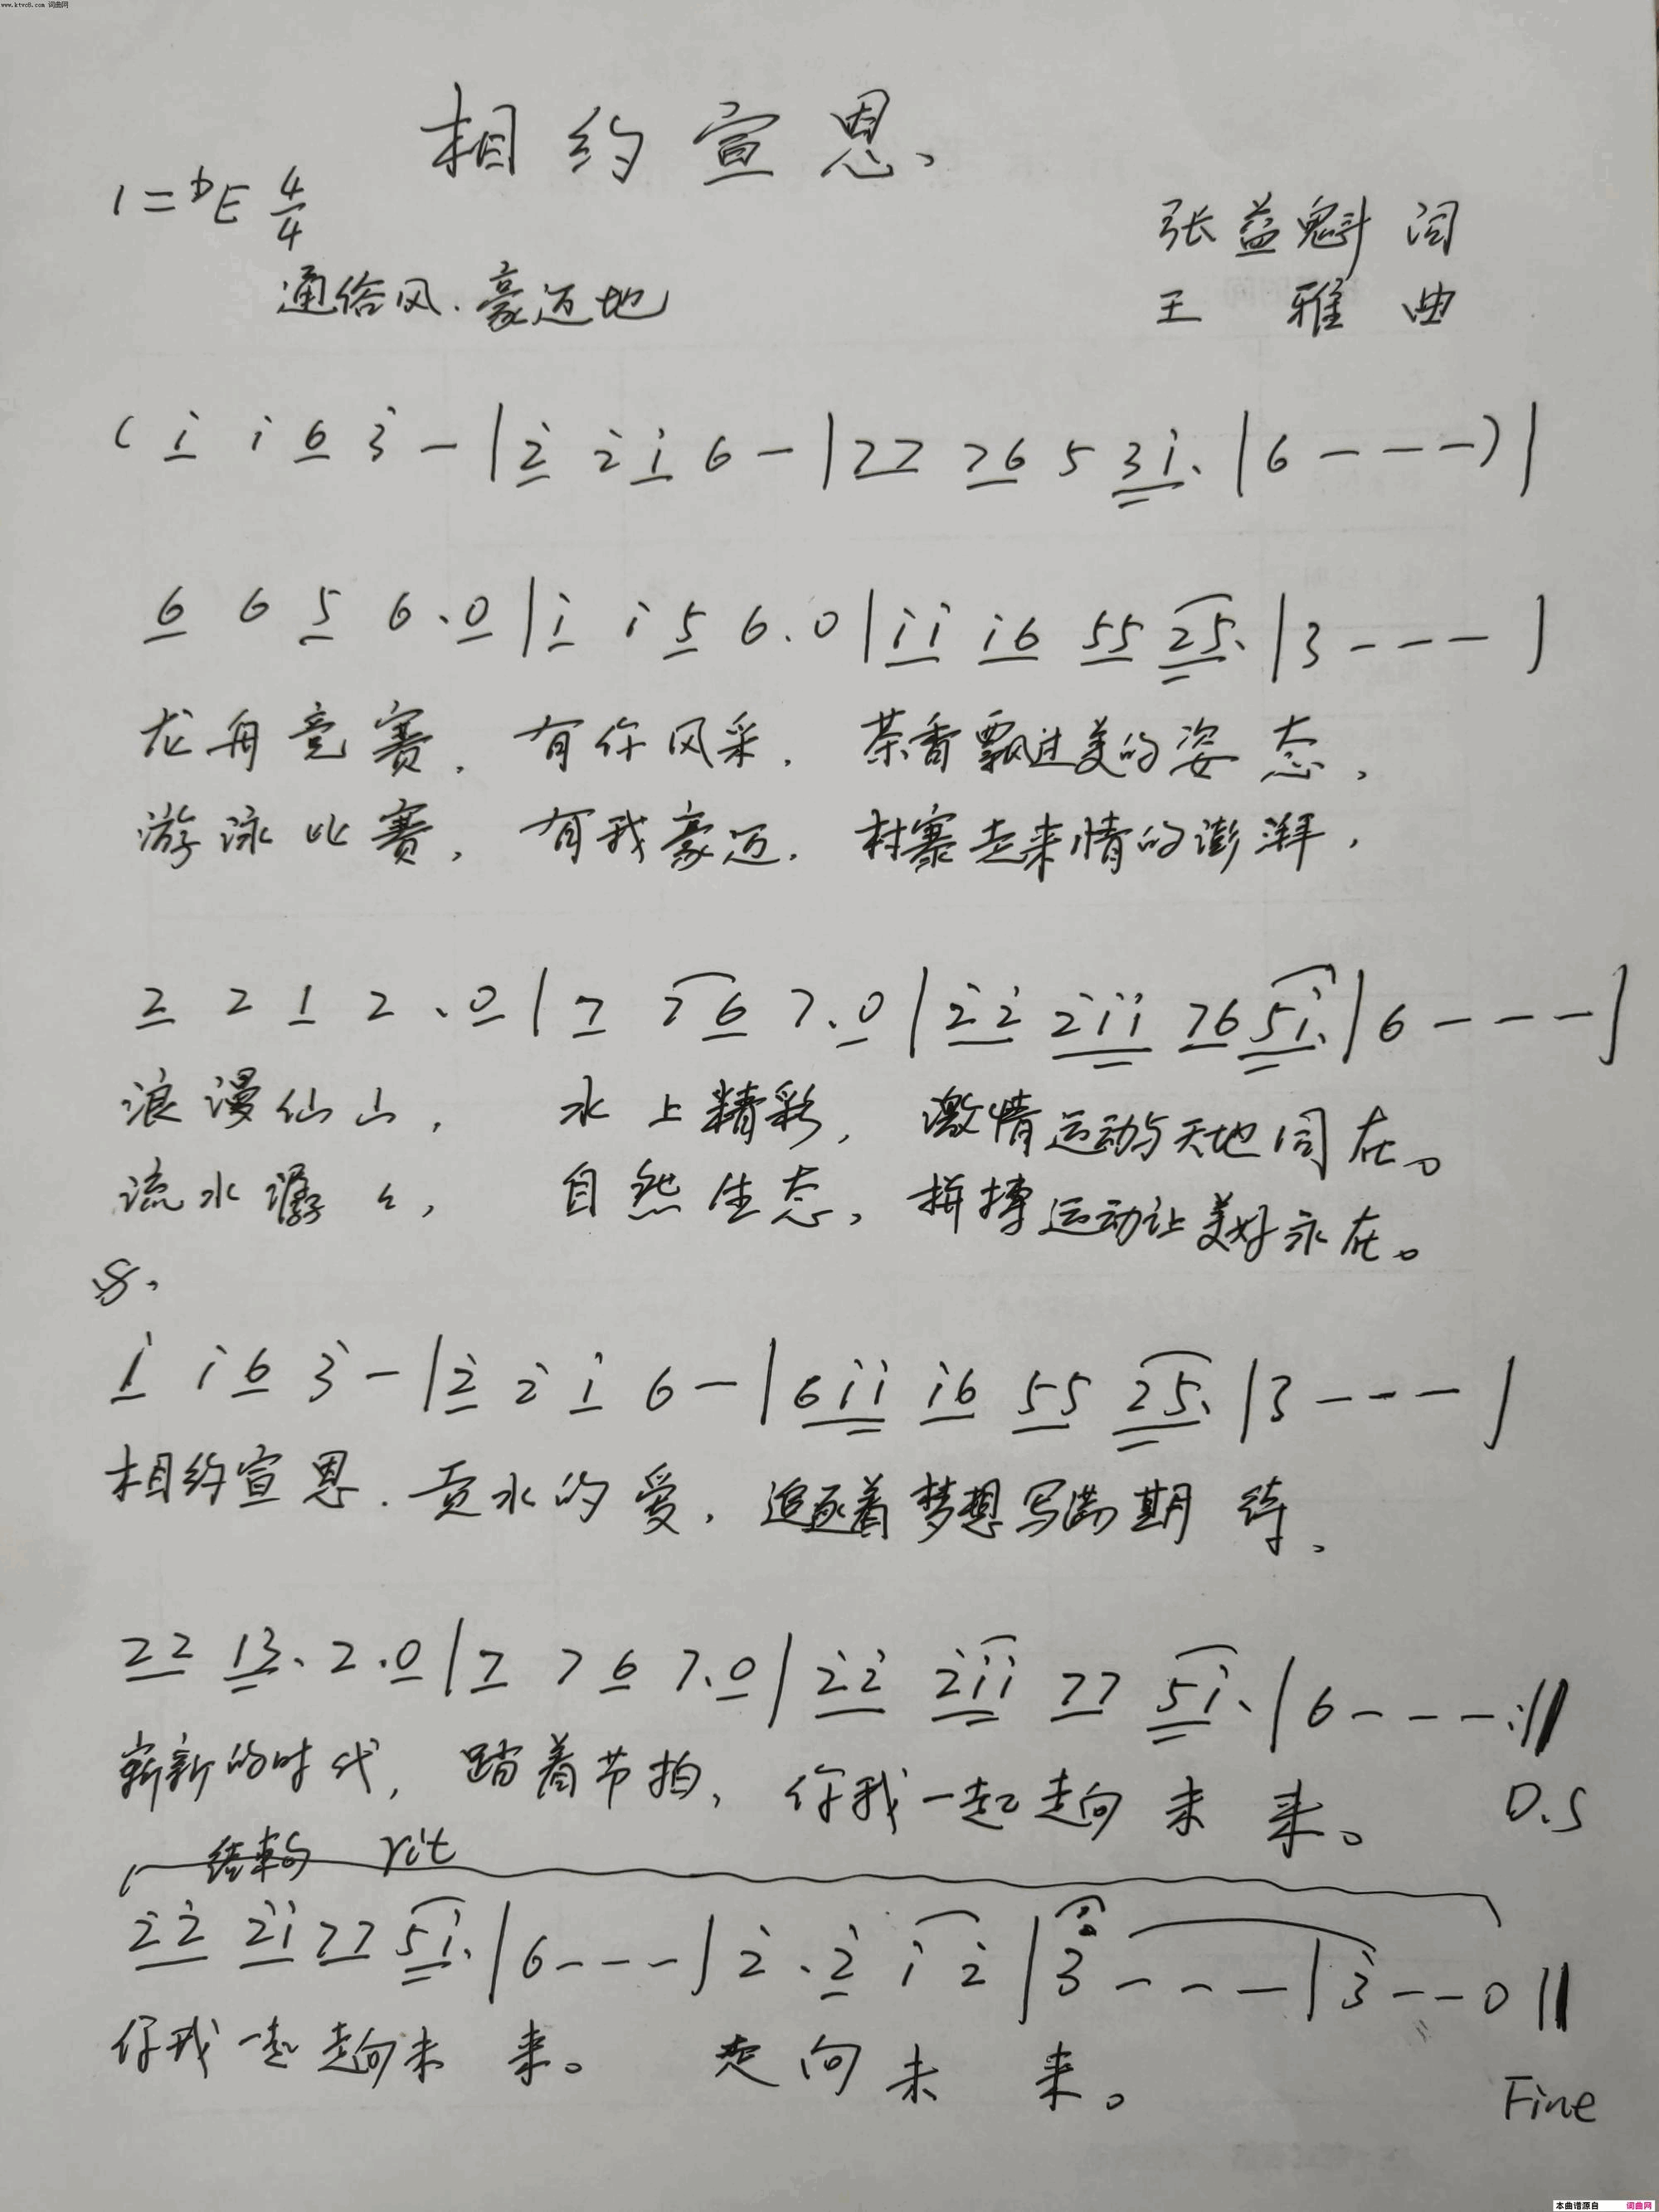 www.ktvc8.com 词曲网
相约宣恩、
1=♭E 4/4
张益魁 词
通俗风.豪迈地
王 雅 曲
( i̇ i̇ 6 3̇ - | 2̇ 2̇ i̇ 6 - | 77 76 5 3i̇. | 6 - - - ) |
6 6 5 6.0 | i̇ i̇ 5 6.0 | i̇i̇ i̇6 55 25. | 3 - - - |
龙舟竞赛, 有你风采. 茶香飘过美的姿态,
游泳比赛, 有我豪迈. 村寨走来情的澎湃,
2 2 1 2.0 | 7 7 6 7.0 | 2̇2̇ 2̇i̇i̇ 76 5i̇. | 6 - - - |
浪漫仙山, 水上精彩, 激情运动与天地同在。
流水潺々, 自然生态, 拼搏运动让美好永在。
𝄋.
i̇ i̇ 6 3̇ - | 2̇ 2̇ i̇ 6 - | 6i̇i̇ i̇6 55 25. | 3 - - - |
相约宣恩. 贡水的爱, 追逐着梦想写满期待、
22 13. 2.0 | 7 7 6 7.0 | 2̇2̇ 2̇i̇i̇ 77 5i̇. | 6 - - - :||
崭新的时代, 踏着节拍, 你我一起走向未来。 D.S
结束句 rit
2̇2̇ 2̇i̇ 77 5i̇. | 6 - - - | 2̇ . 2̇ i̇ 2̇ | 3̇ - - - | 3̇ - - 0 ||
你我一起走向未来。 走向未来。
Fine
本曲谱源自 词曲网